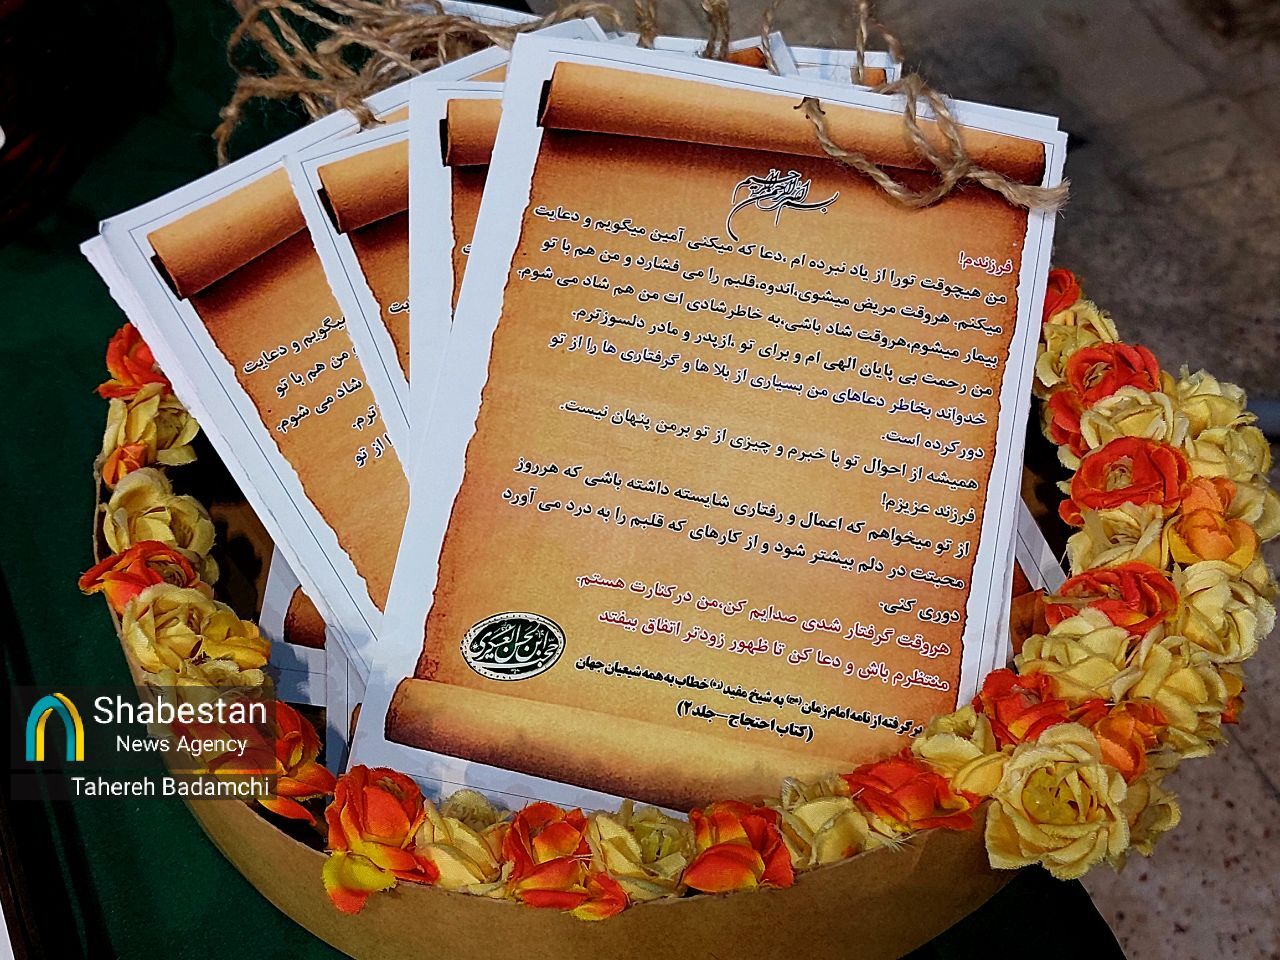 بسم الله الرحمن الرحیم
فرزندم!
من هیچوقت تورا از یاد نبرده ام ،دعا که میکنی آمین میگویم و دعایت
میکنم. هروقت مریض میشوی،اندوه،قلبم را می فشارد و من هم با تو
بیمار میشوم،هروقت شاد باشی،به خاطرشادی ات من هم شاد می شوم.
من رحمت بی پایان الهی ام و برای تو ،ازپدر و مادر دلسوزترم.
خدواند بخاطر دعاهای من بسیاری از بلا ها و گرفتاری ها را از تو
دورکرده است.
همیشه از احوال تو با خبرم و چیزی از تو برمن پنهان نیست.
فرزند عزیزم!
از تو میخواهم که اعمال و رفتاری شایسته داشته باشی که هرروز
محبتت در دلم بیشتر شود و از کارهای که قلبم را به درد می آورد
دوری کنی.
هروقت گرفتار شدی صدایم کن،من درکنارت هستم.
منتظرم باش و دعا کن تا ظهور زودتر اتفاق بیفتد
برگرفته از نامه امام زمان (عج) به شیخ مفید (ره) خطاب به همه شیعیان جهان
(کتاب احتجاج–جلد۲)
میگویم و دعایت
من هم با تو
شاد می شوم.
ترم.
را از تو
Shabestan
News Agency
Tahereh Badamchi